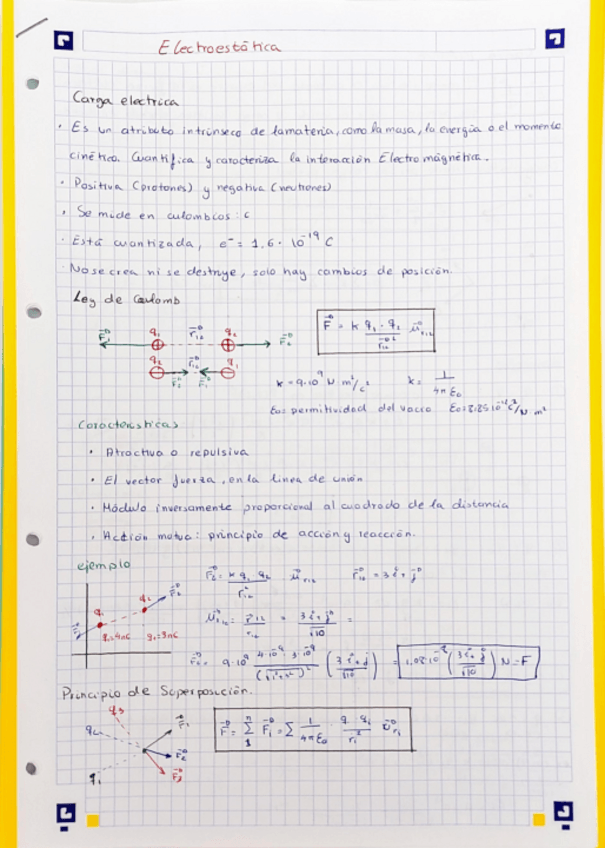 Electroestática
Carga electrica
· Es un atributo intrínseco de lamateria, como la masa, la energía o el momento
cinético. Cuantifica y caracteriza la interacción Electromágnética.
· Positiva (protones) y negativa (neutrones)
· Se mide en culombios: c
· Está cuantizada, e⁻ = 1,6 · 10⁻¹⁹ C
· No se crea ni se destruye, solo hay cambios de posición.
Ley de Coulomb
F = k q₁ · q₂ / r₁₂² u r₁₂
k = 9·10⁹ N m²/c² k = 1 / 4π ε₀
ε₀ = permitividad del vacío
Características
· Atractiva o repulsiva
· El vector fuerza, en la línea de unión
· Módulo inversamente proporcional al cuadrado de la distancia
· Acción mutua: principio de acción y reacción.
ejemplo
F₂ = k q₁ q₂ / r₁₂² u r₁₂ r₁₂ = 3i + j
q₁ = 4nC q₂ = 3nC
u r₁₂ = r₁₂ / r₁₂ = 3i + j / √10 =
Principio de Superposición.
q₃
q₂
q₁
F₁
F₂
F₃
F = Σ Fᵢ = Σ 1 / 4π ε₀ · q · qᵢ / rᵢ² u rᵢ